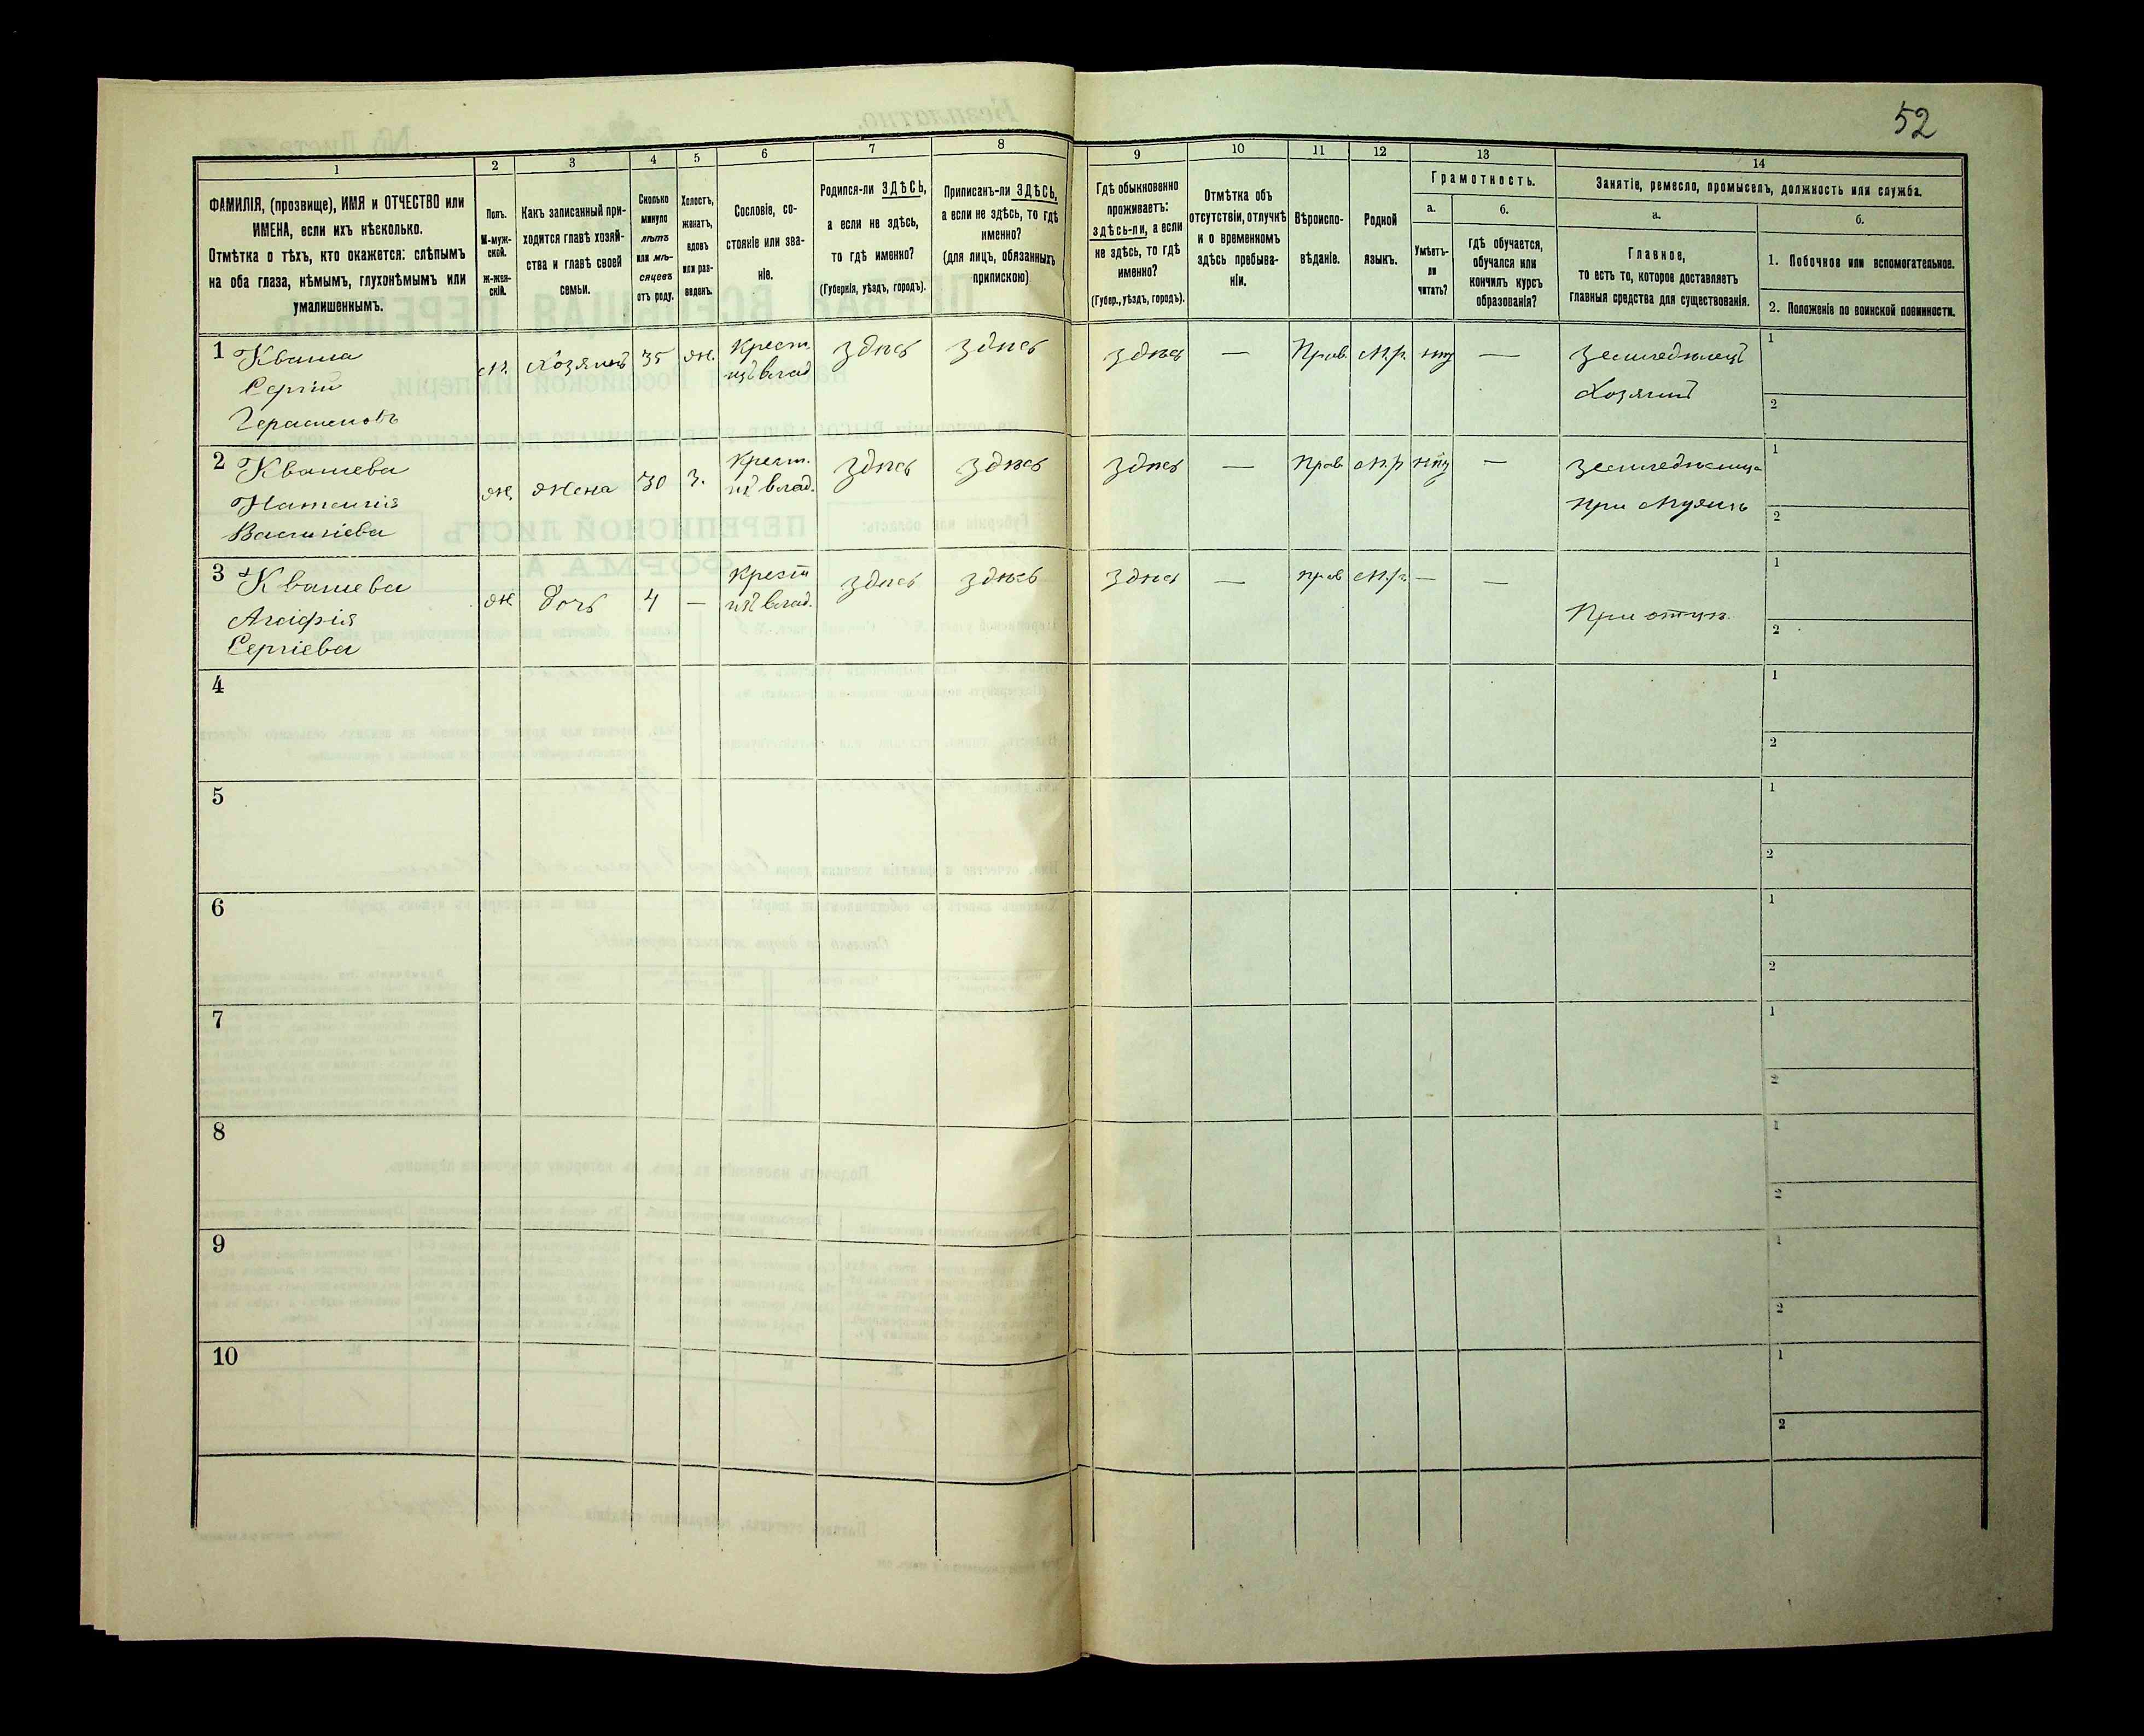 52
1
2
3
4
5
6
7
8
9
10
11
12
13
14
ФАМИЛІЯ, (прозвище), ИМЯ и ОТЧЕСТВО или
ИМЕНА, если ихъ нѣсколько.
Отмѣтка о тѣхъ, кто окажется: слѣпымъ
на оба глаза, нѣмымъ, глухонѣмымъ или
умалишеннымъ.
Полъ.
М-муж-
ской.
Ж-жен-
скій.
Какъ записанный при-
ходится главѣ хозяй-
ства и главѣ своей
семьи.
Сколько
минуло
лѣтъ
или мѣ-
сяцевъ
отъ роду.
Холостъ,
женатъ,
вдовъ
или раз-
веденъ.
Сословіе, со-
стояніе или зва-
ніе.
Родился-ли ЗДѢСЬ,
а если не здѣсь,
то гдѣ именно?
(Губернія, уѣздъ, городъ).
Приписанъ-ли ЗДѢСЬ,
а если не здѣсь, то гдѣ
именно?
(для лицъ, обязанныхъ
припискою)
Гдѣ обыкновенно
проживаетъ:
здѣсь-ли, а если
не здѣсь, то гдѣ
именно?
(Губер., уѣздъ, городъ).
Отмѣтка объ
отсутствіи, отлучкѣ
и о временномъ
здѣсь пребыва-
ніи.
Вѣроиспо-
вѣданіе.
Родной
языкъ.
Грамотность.
а.
Умѣетъ-
ли
читать?
б.
гдѣ обучается,
обучался или
кончилъ курсъ
образованія?
Занятіе, ремесло, промыселъ, должность или служба.
а.
Главное,
то есть то, которое доставляетъ
главныя средства для существованія.
б.
1. Побочное или вспомогательное.
2. Положеніе по воинской повинности.
1 Кваша
Сергій
Герасимовъ
м. Хозяинъ 35 ж. Крест.
изъ влад здѣсь здѣсь здѣсь — Прав. М.р. нѣт — земледѣлецъ
Хозяинъ
1
2
2 Квашева
Наталія
Василіева
ж. жена 30 з. Крест.
изъ влад. здѣсь здѣсь здѣсь — прав м.р нѣт — земледѣлица
при мужѣ
1
2
3 Квашева
Агафія
Сергіева
ж дочь 4 — Крест
изъ влад. здѣсь здѣсь здѣсь — прав м.р. — —
При отцѣ.
1
2
4
1
2
5
1
2
6
1
2
7
1
2
8
1
2
9
1
2
10
1
2